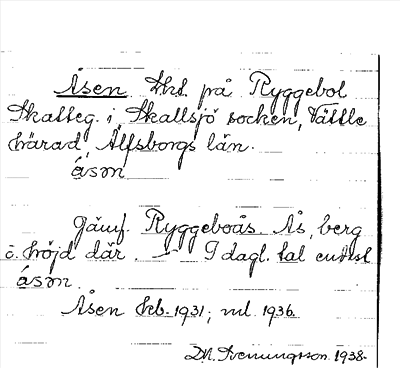 Åsen Lht. på Ryggebol
Skatteg. i Skallsjö socken, Vättle
härad, Älfsborgs län.
åsən
Jämf. Ryggeboås. Ås, berg
o. höjd där. — I dagl. tal enbart
åsən.
Åsen Eb. 1931; ml. 1936.
D.N. Svenungsson. 1938.